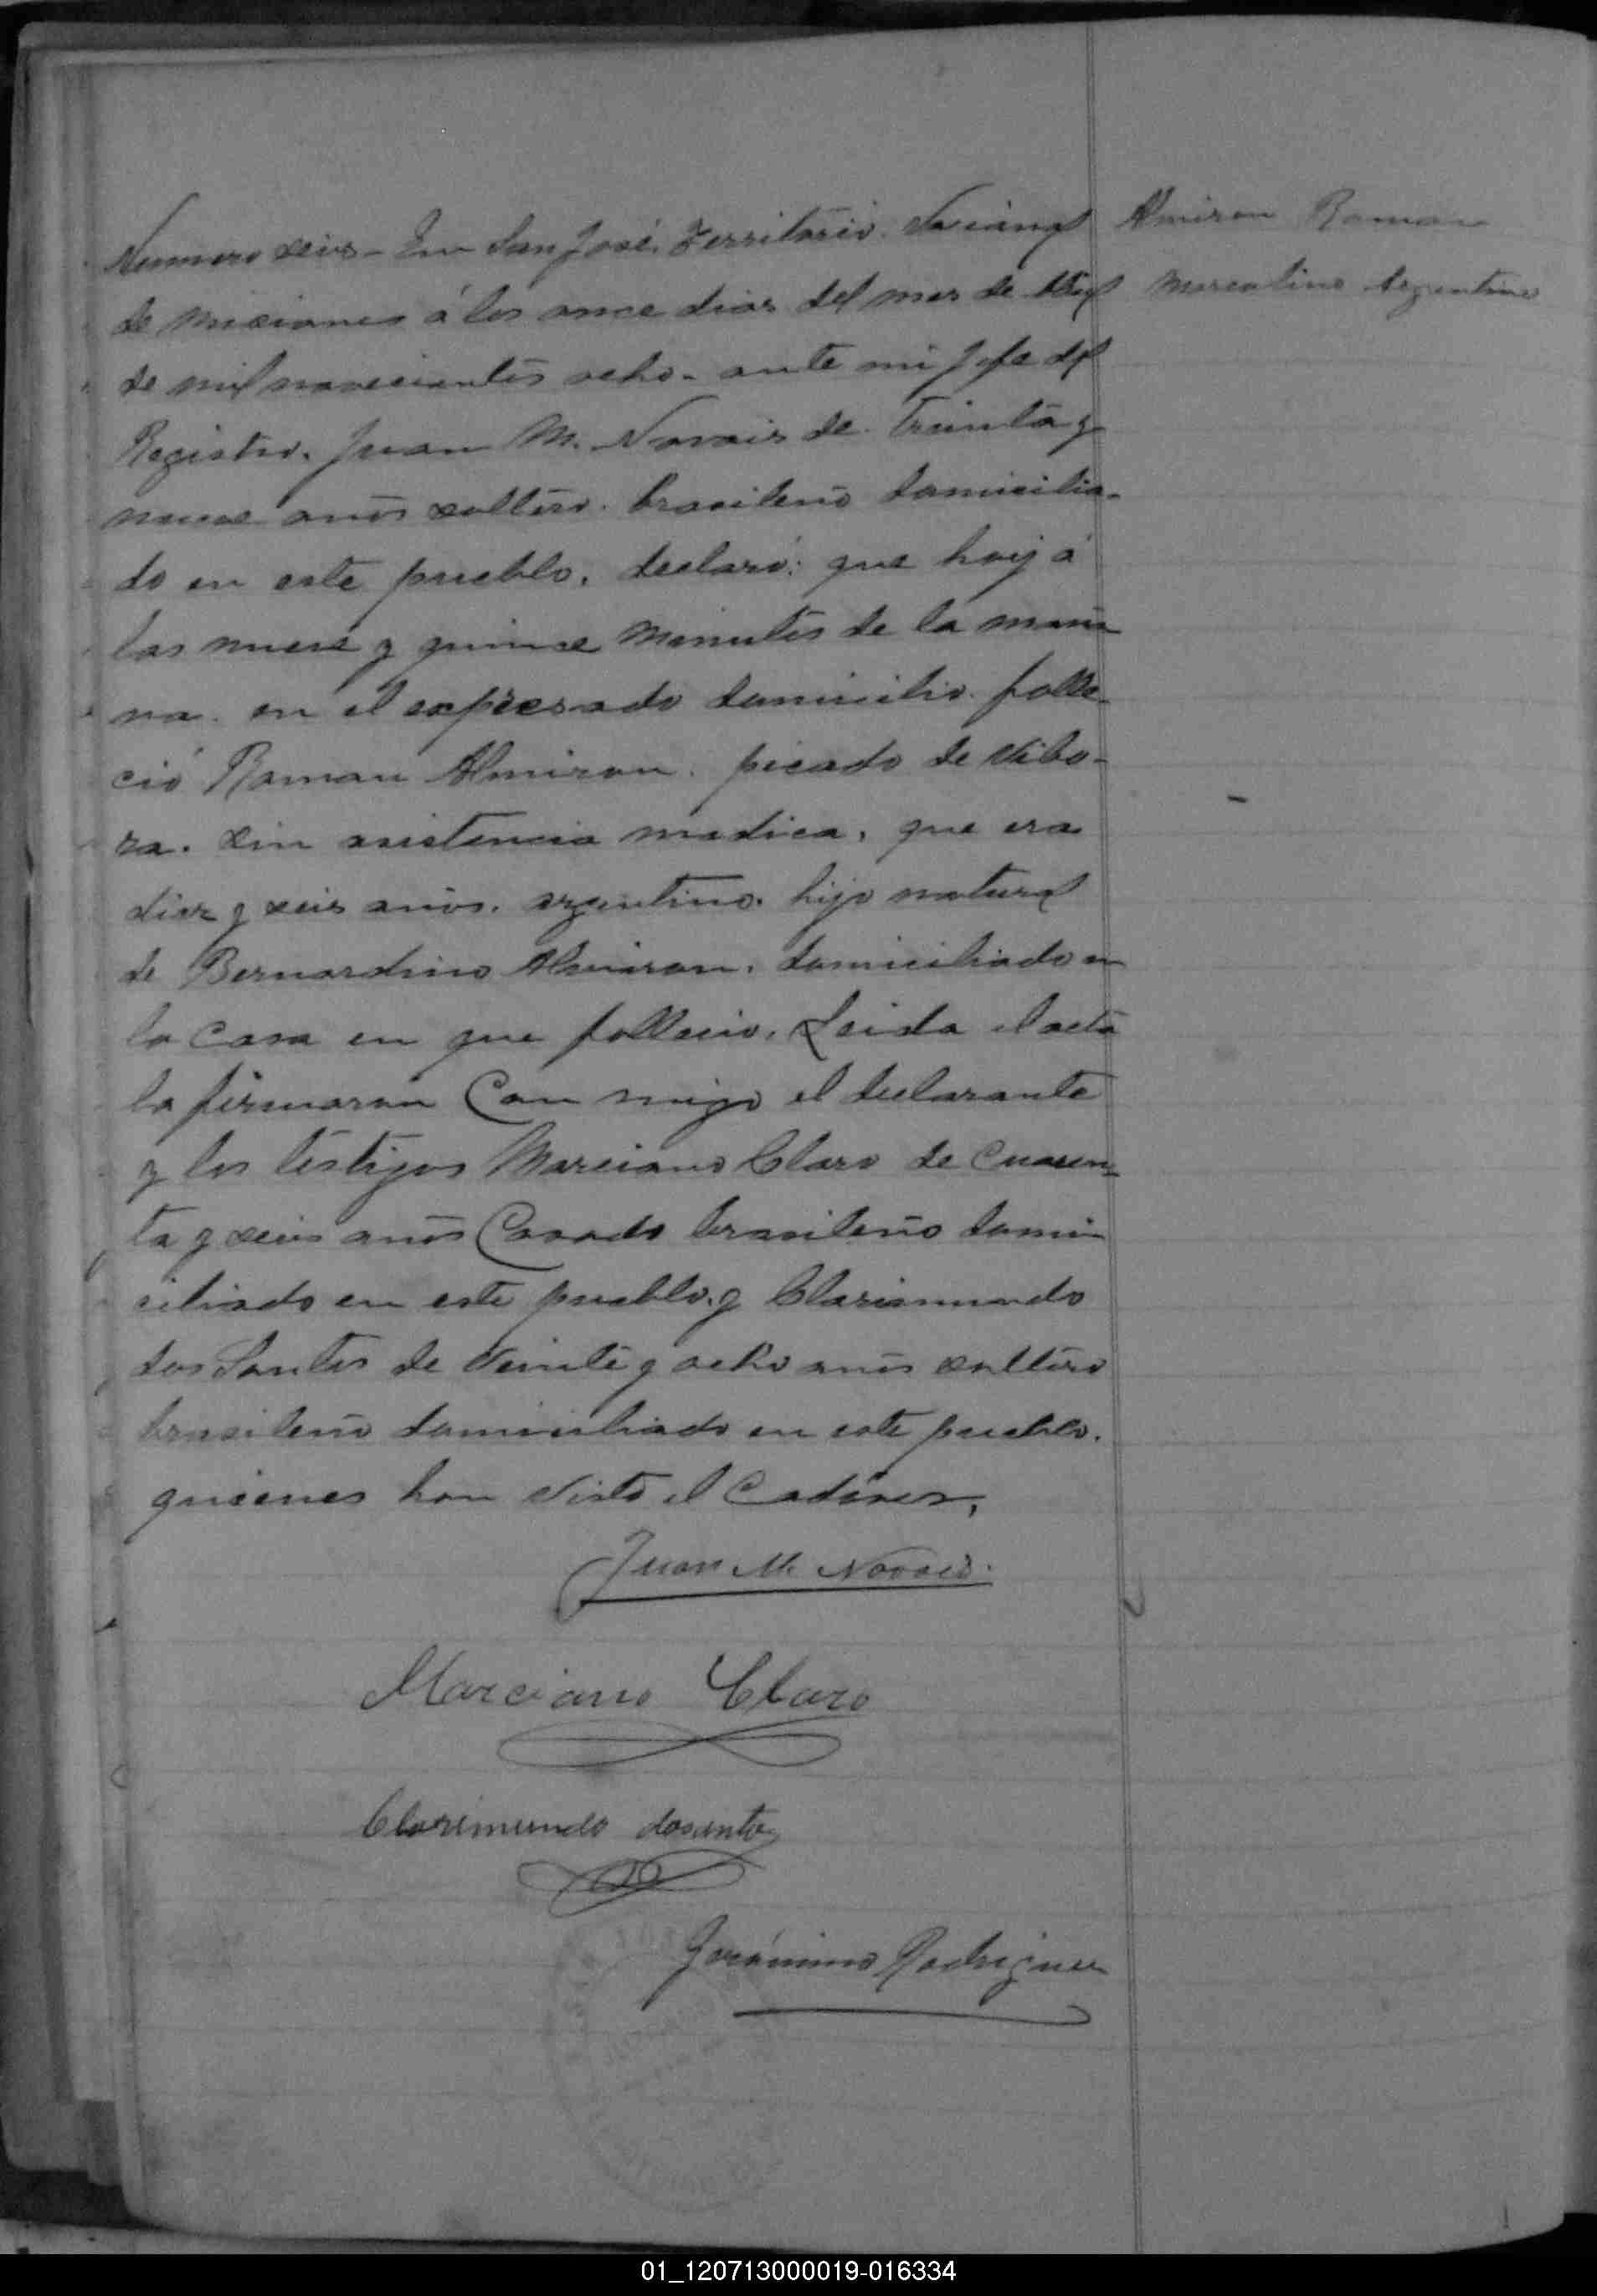 Numero seis - En San José, Territorio Nacional
de Misiones á los once dias del mes de Abril
de mil novecientos ocho - ante mi Jefe del
Registro. Juan M. Novais de treinta y
nueve anõs soltero. brasileño domicilia-
do en este pueblo, declaró: que hoy á
las nueve y quince minutos de la maña
na. en el expresado domicilio. falle-
ció Roman Almiron. picado de vibo-
ra. sin asistencia medica, que era
diez y seis años. argentino. hijo natural
de Bernardino Almiron. domiciliado en
la casa en que fallecio. Leida el acta
la firmaron Con migo el declarante
y los testigos Marciano Claro de Cuaren-
ta y seis anõs Casado brasileño domi-
ciliado en este pueblo. y Clarimundo
dos Santos de veinte y ocho anõs soltero
brasileño domiciliado en este pueblo.
quienes han visto el Cadaver.
Juan M. Novais.
Marciano Claro
Clarimundo dosanto
Gerónimo Rodriguez
Almiron Roman
Masculino Argentino
01_120713000019-016334